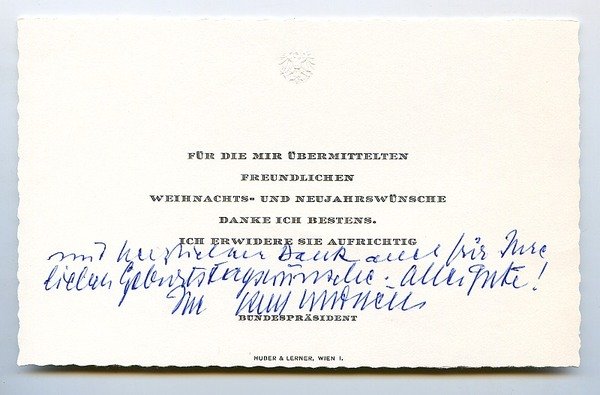 FÜR DIE MIR ÜBERMITTELTEN
FREUNDLICHEN
WEIHNACHTS- UND NEUJAHRSWÜNSCHE
DANKE ICH BESTENS.
ICH ERWIDERE SIE AUFRICHTIG
und herzlichen Dank auch für Ihre
lieben Geburtstagswünsche. Alles Gute!
Ihr Kurt Waldheim
BUNDESPRÄSIDENT
HUBER & LERNER, WIEN I.